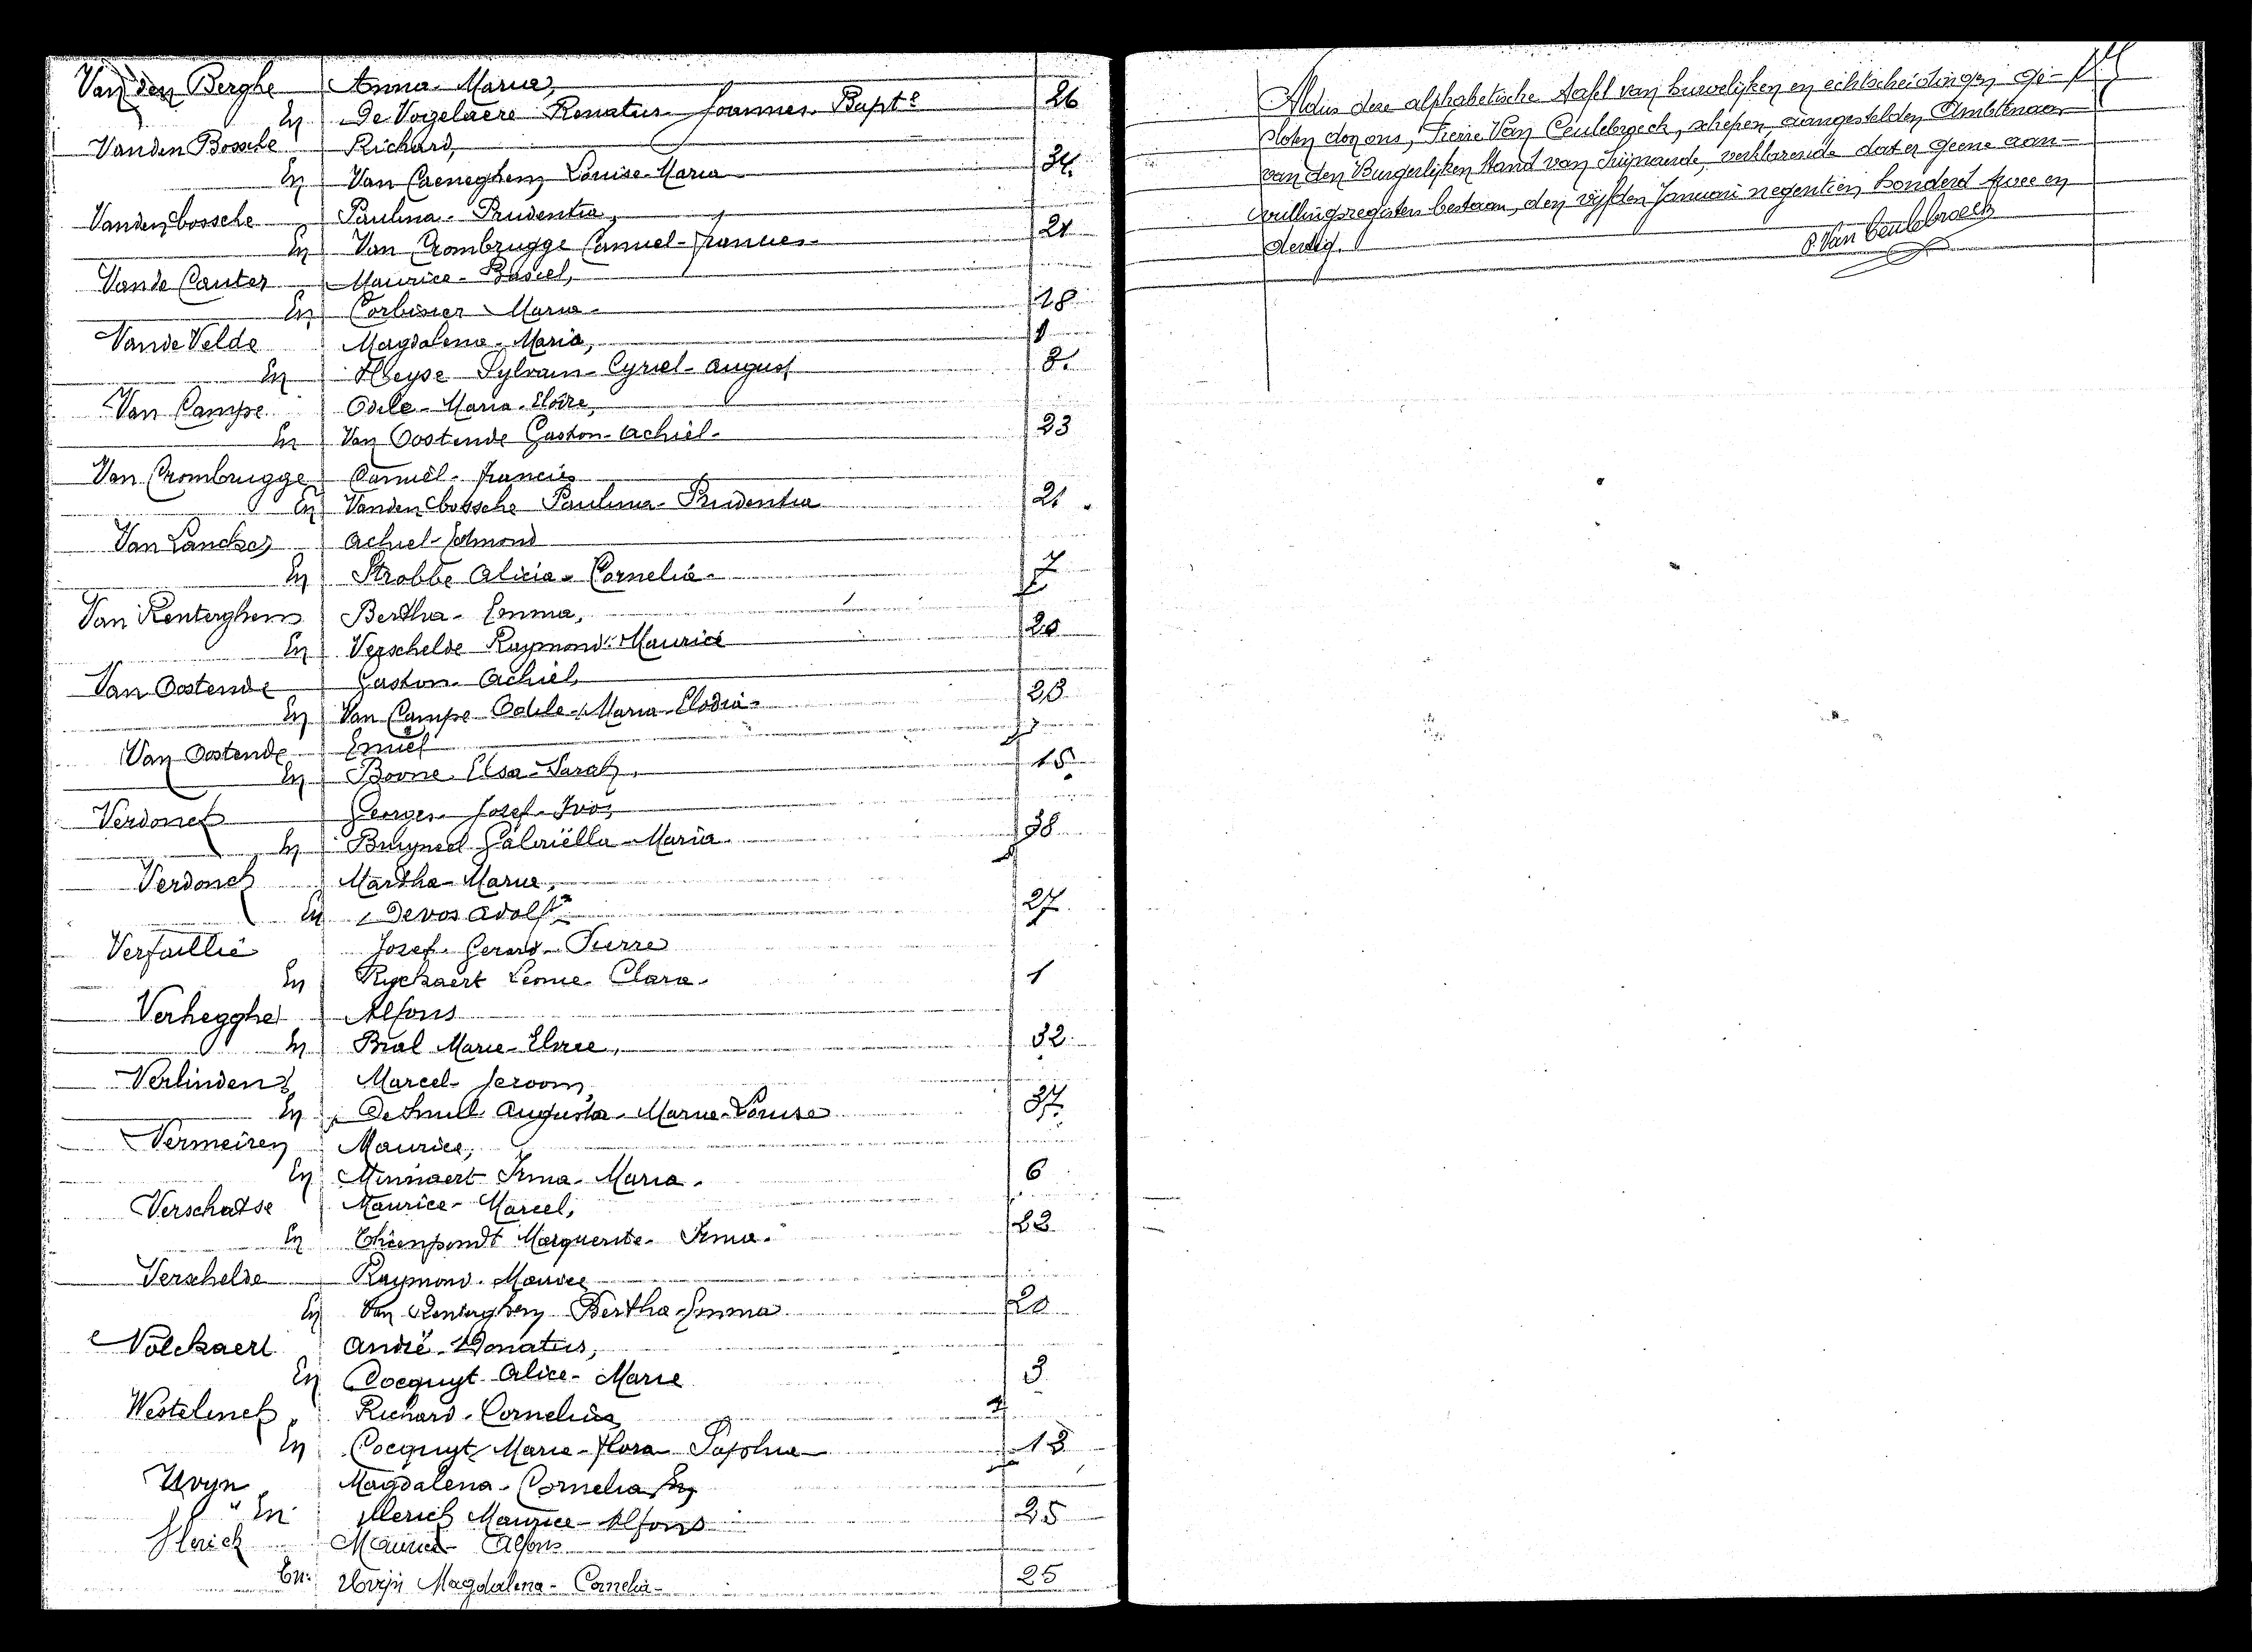 Van den Berghe Anna Maria,
En De Vogelaere Renatus Joannes Bapte 26
Vanden Bossche Richard,
En Van Caeneghem Louise Maria 34.
Vandenbossche Paulina - Prudentia,
En Van Crombrugge Camiel - Francies - 21
Van de Cauter Maurice - Basiel,
En Corbisier Maria - 18
Vande Velde Magdalena - Maria,
En Heyse Sylvain - Cyriel - August 8.
Van Campe Odile - Maria -
En Van Oostende Gaston - Achiel - 23
Van Crombrugge Camiël - Francies
En Vandenbossche Paulina - Prudentia 21
Van Lancker Achiel - Edmond
En Strobbe Alicia - Cornelia - 7
Van Renterghem Bertha - Emma,
En Verschelde Raymond - Maurice 20
Van Oostende Gaston - Achiel,
En Van Campe Odile - Maria - Elodia - 23
Van Oostende Emiel
En Bovne Elsa - Sarah, 15
Verdonck Georges Josef - Ivo,
En Gabriëlla - Maria 38
Verdonck Martha - Maria,
En De vos Adolf 27
Verfaillie Josef - Gerard - Pierre
En Ryckaert Leonie - Clara - 1
Verhegghe Alfons
En Bral Marie - Elvire, 32
Verlinden Marcel - Jeroom,
En De Smul Augusta - Marie - Louise 37.
Vermeiren Maurice,
En Minnaert Irma - Maria - 6
Verschatse Maurice - Marcel,
En Thienpondt Marguerite - Irma -
Verschelde Raymond - Maurice
En Van Renterghem Bertha - Emma 20
Volckaert André - Donatus,
En Cocquyt Alice - Marie 3
Westelinck Richard - Cornelius
En Cocquyt Marie - Flora Sophie 13
Uvyn Magdalena - Cornelia
" En Illerich Maurice - Alfons 25
Illerich Maurice - Alfons
En: Uvyn Magdalena - Cornelia - 25
Aldus deze alphabetische tafel van huwelijken en echtscheidingen ge-
sloten door ons, Pierre Van Ceulebroeck, schepen, aangestelden Ambtenaar
van den Burgerlijken Stand van Zwijnaarde, verklarende dat er geene aan-
vullingsregisters bestaan, den vijfden Januari negentien honderd twee en
dertig.
P. Van Ceulebroeck